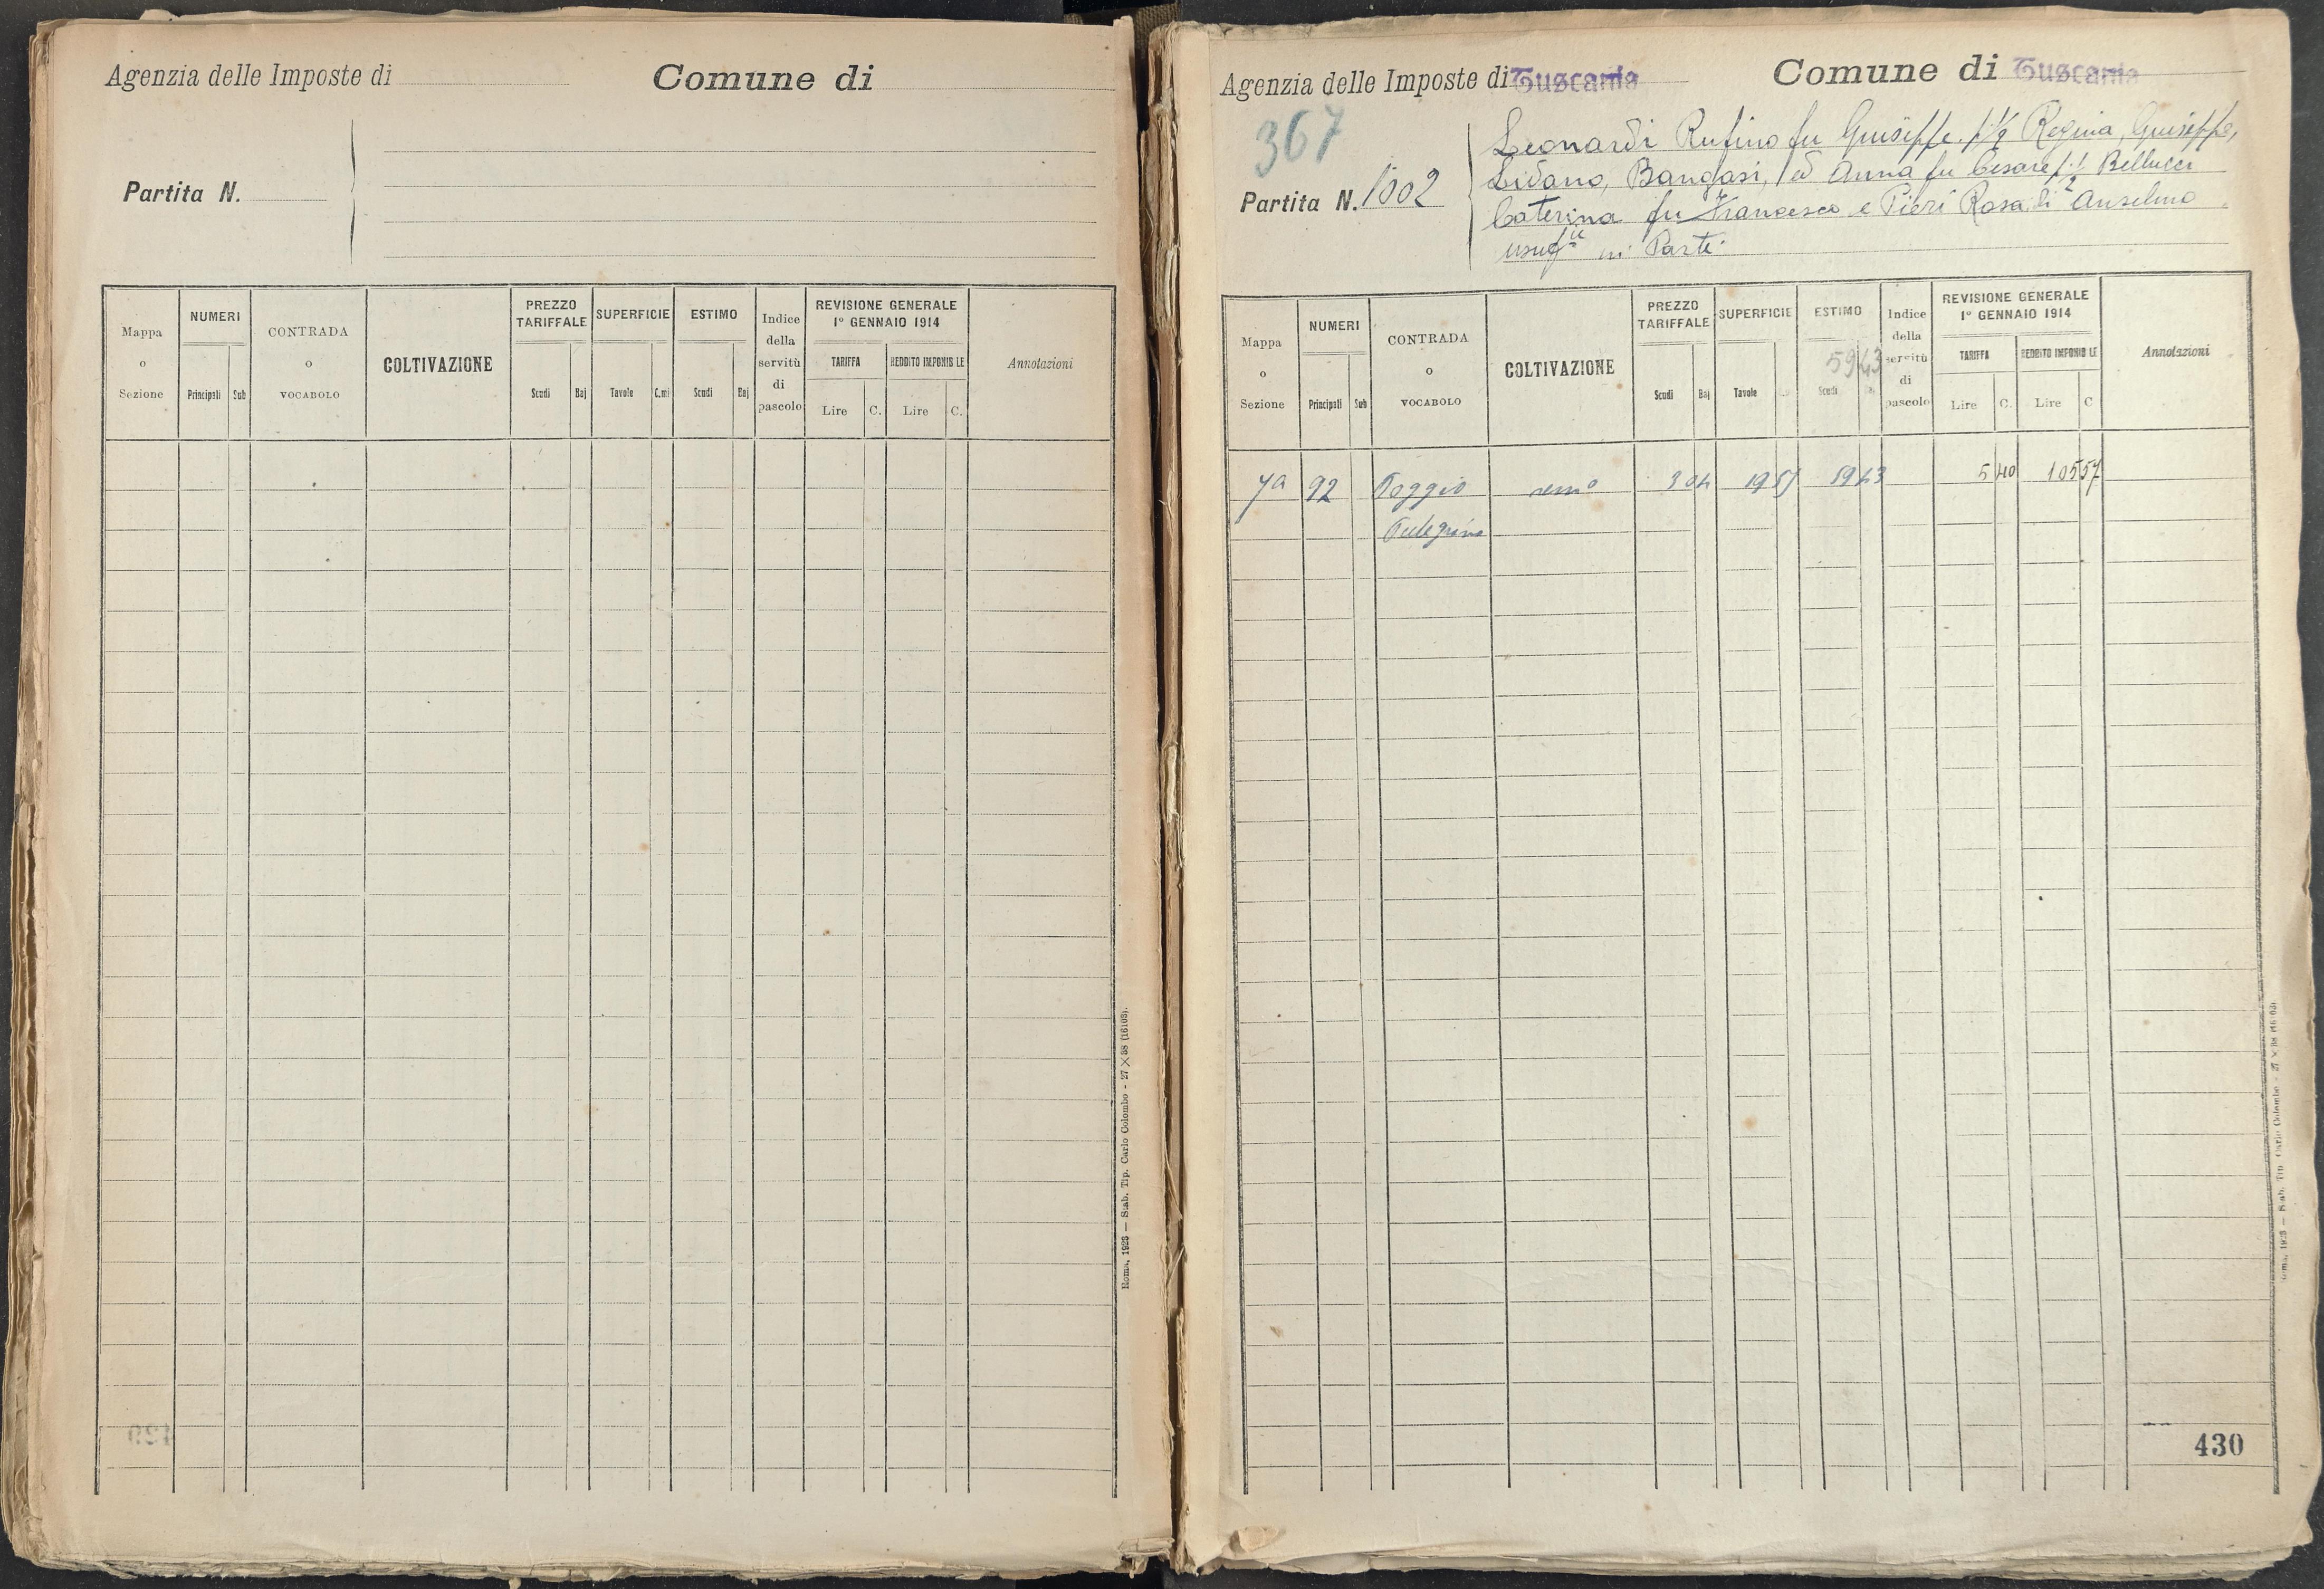 Agenzia delle Imposte di
Comune di
Partita N.
Mappa o Sezione
NUMERI
Principali Sub
CONTRADA o VOCABOLO
COLTIVAZIONE
PREZZO TARIFFALE
Scudi Baj
SUPERFICIE
Tavole C.mi
ESTIMO
Scudi Baj
Indice della servitù di pascolo
REVISIONE GENERALE
1° GENNAIO 1914
TARIFFA
Lire C.
REDDITO IMPONIB LE
Lire C.
Annotazioni
Roma, 1923 — Stab. Tip. Carlo Colombo - 27 × 38 (16103).
Agenzia delle Imposte di Tuscania
Comune di Tuscania
367
Partita N. 1002
Leonardi Rufino fu Giuseppe Regina, Giuseppe,
Lidano, ed Anna fu Cesare Bellucci
Caterina fu Francesco e Pieri Rosa di Anselmo
in Parte
Mappa o Sezione
NUMERI
Principali Sub
CONTRADA o VOCABOLO
COLTIVAZIONE
PREZZO TARIFFALE
Scudi Baj
SUPERFICIE
Tavole
ESTIMO
5943
Scudi
Indice della servitù di pascolo
REVISIONE GENERALE
1° GENNAIO 1914
TARIFFA
Lire C.
REDDITO IMPONIB LE
Lire C
Annotazioni
7a 92 Poggio sem° 3 04 19 55 59 43 5 40 105 57
430